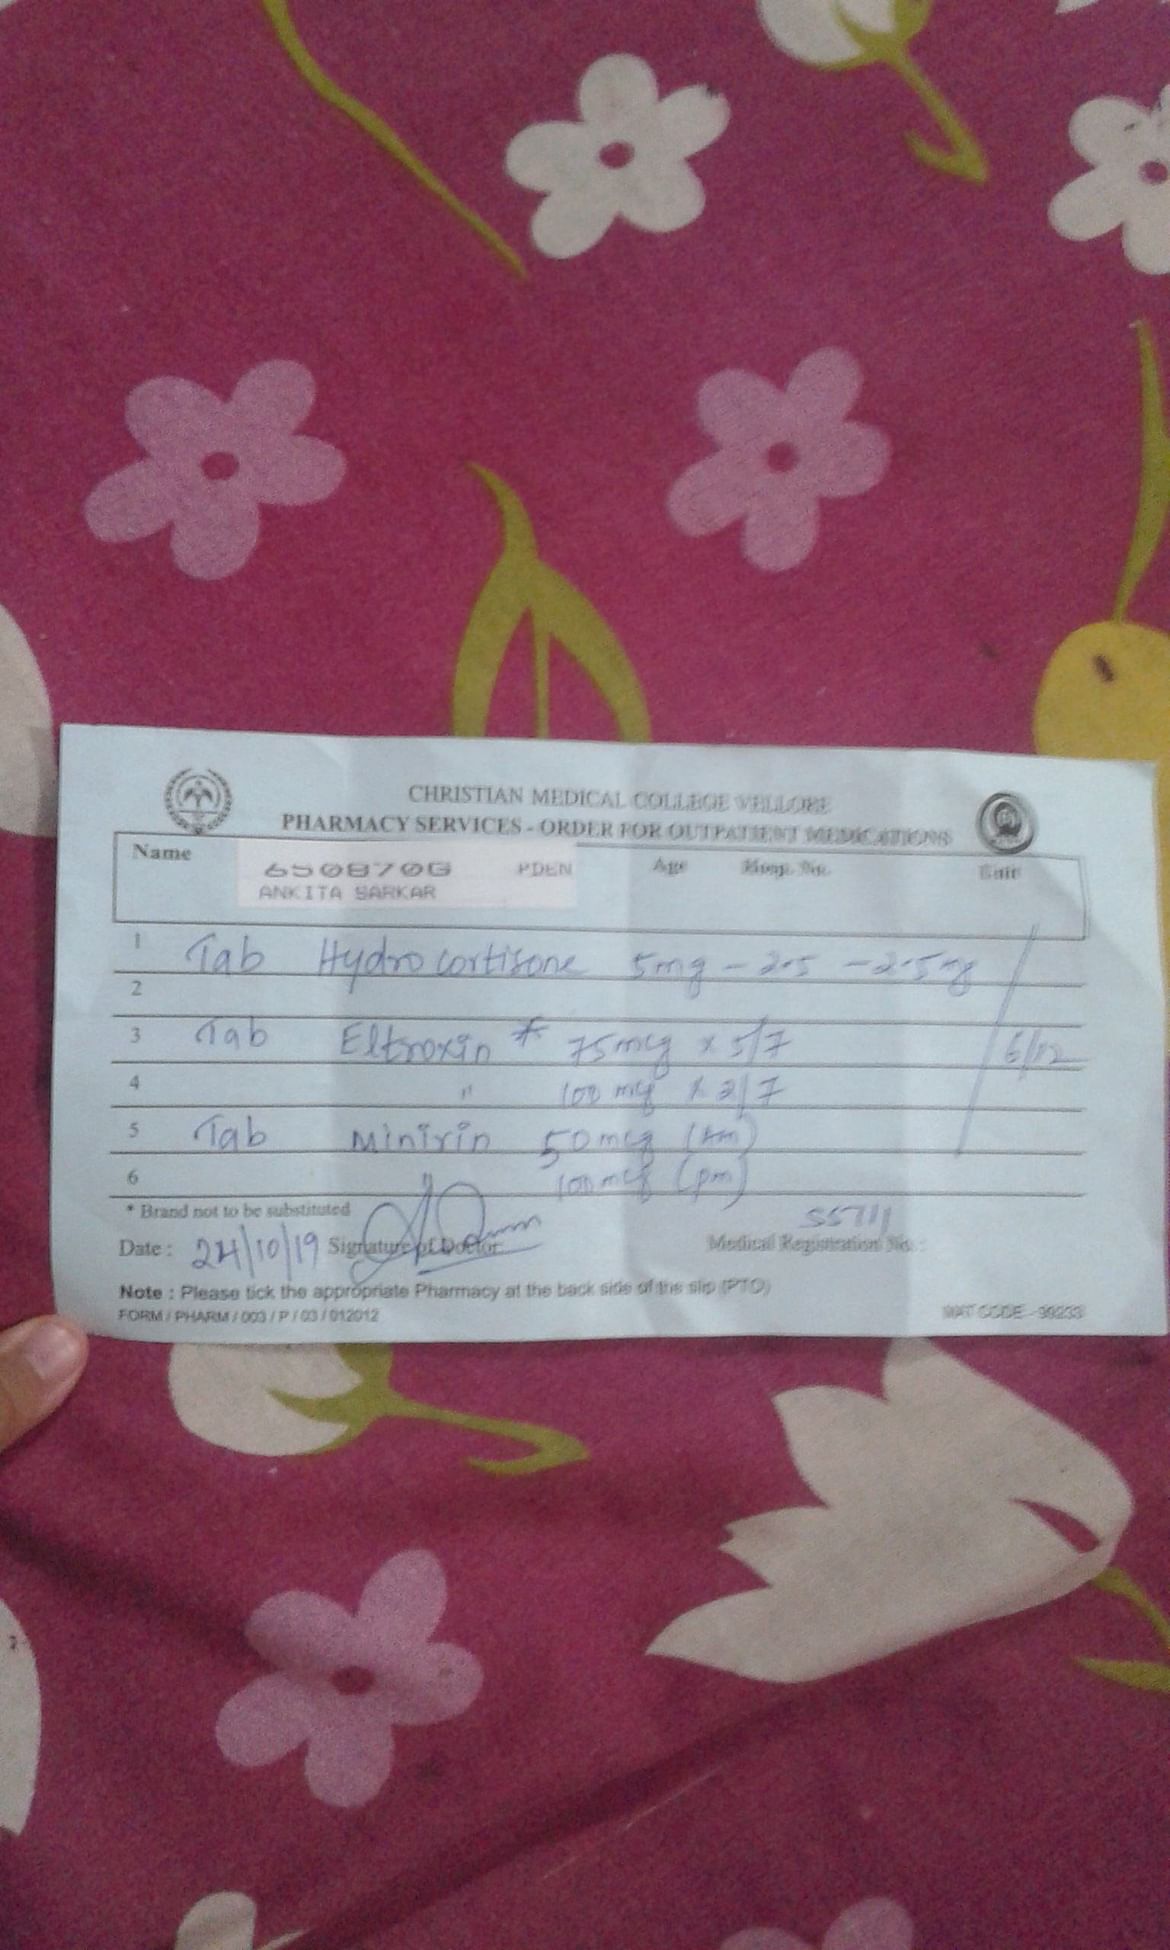 CHRISTIAN MEDICAL COLLEGE VELLORE
PHARMACY SERVICES - ORDER FOR OUTPATIENT MEDICATIONS
Name 650870G PDEN Age Hosp. No. Unit
ANKITA SARKAR
1 Tab Hydrocortisone 5mg - 2.5 - 2.5mg
2
3 Tab Eltroxin * 75mcg x 5/7 6/12
4 " 100 mcg x 2/7
5 Tab Minirin 50mcg (am)
6 100mcg (pm)
* Brand not to be substituted
55711
Date : 24/10/19 Signature of Doctor: Medical Registration No. :
Note : Please tick the appropriate Pharmacy at the back side of the slip (PTO)
FORM / PHARM / 003 / P / 03 / 012012 MAT CODE - 99233